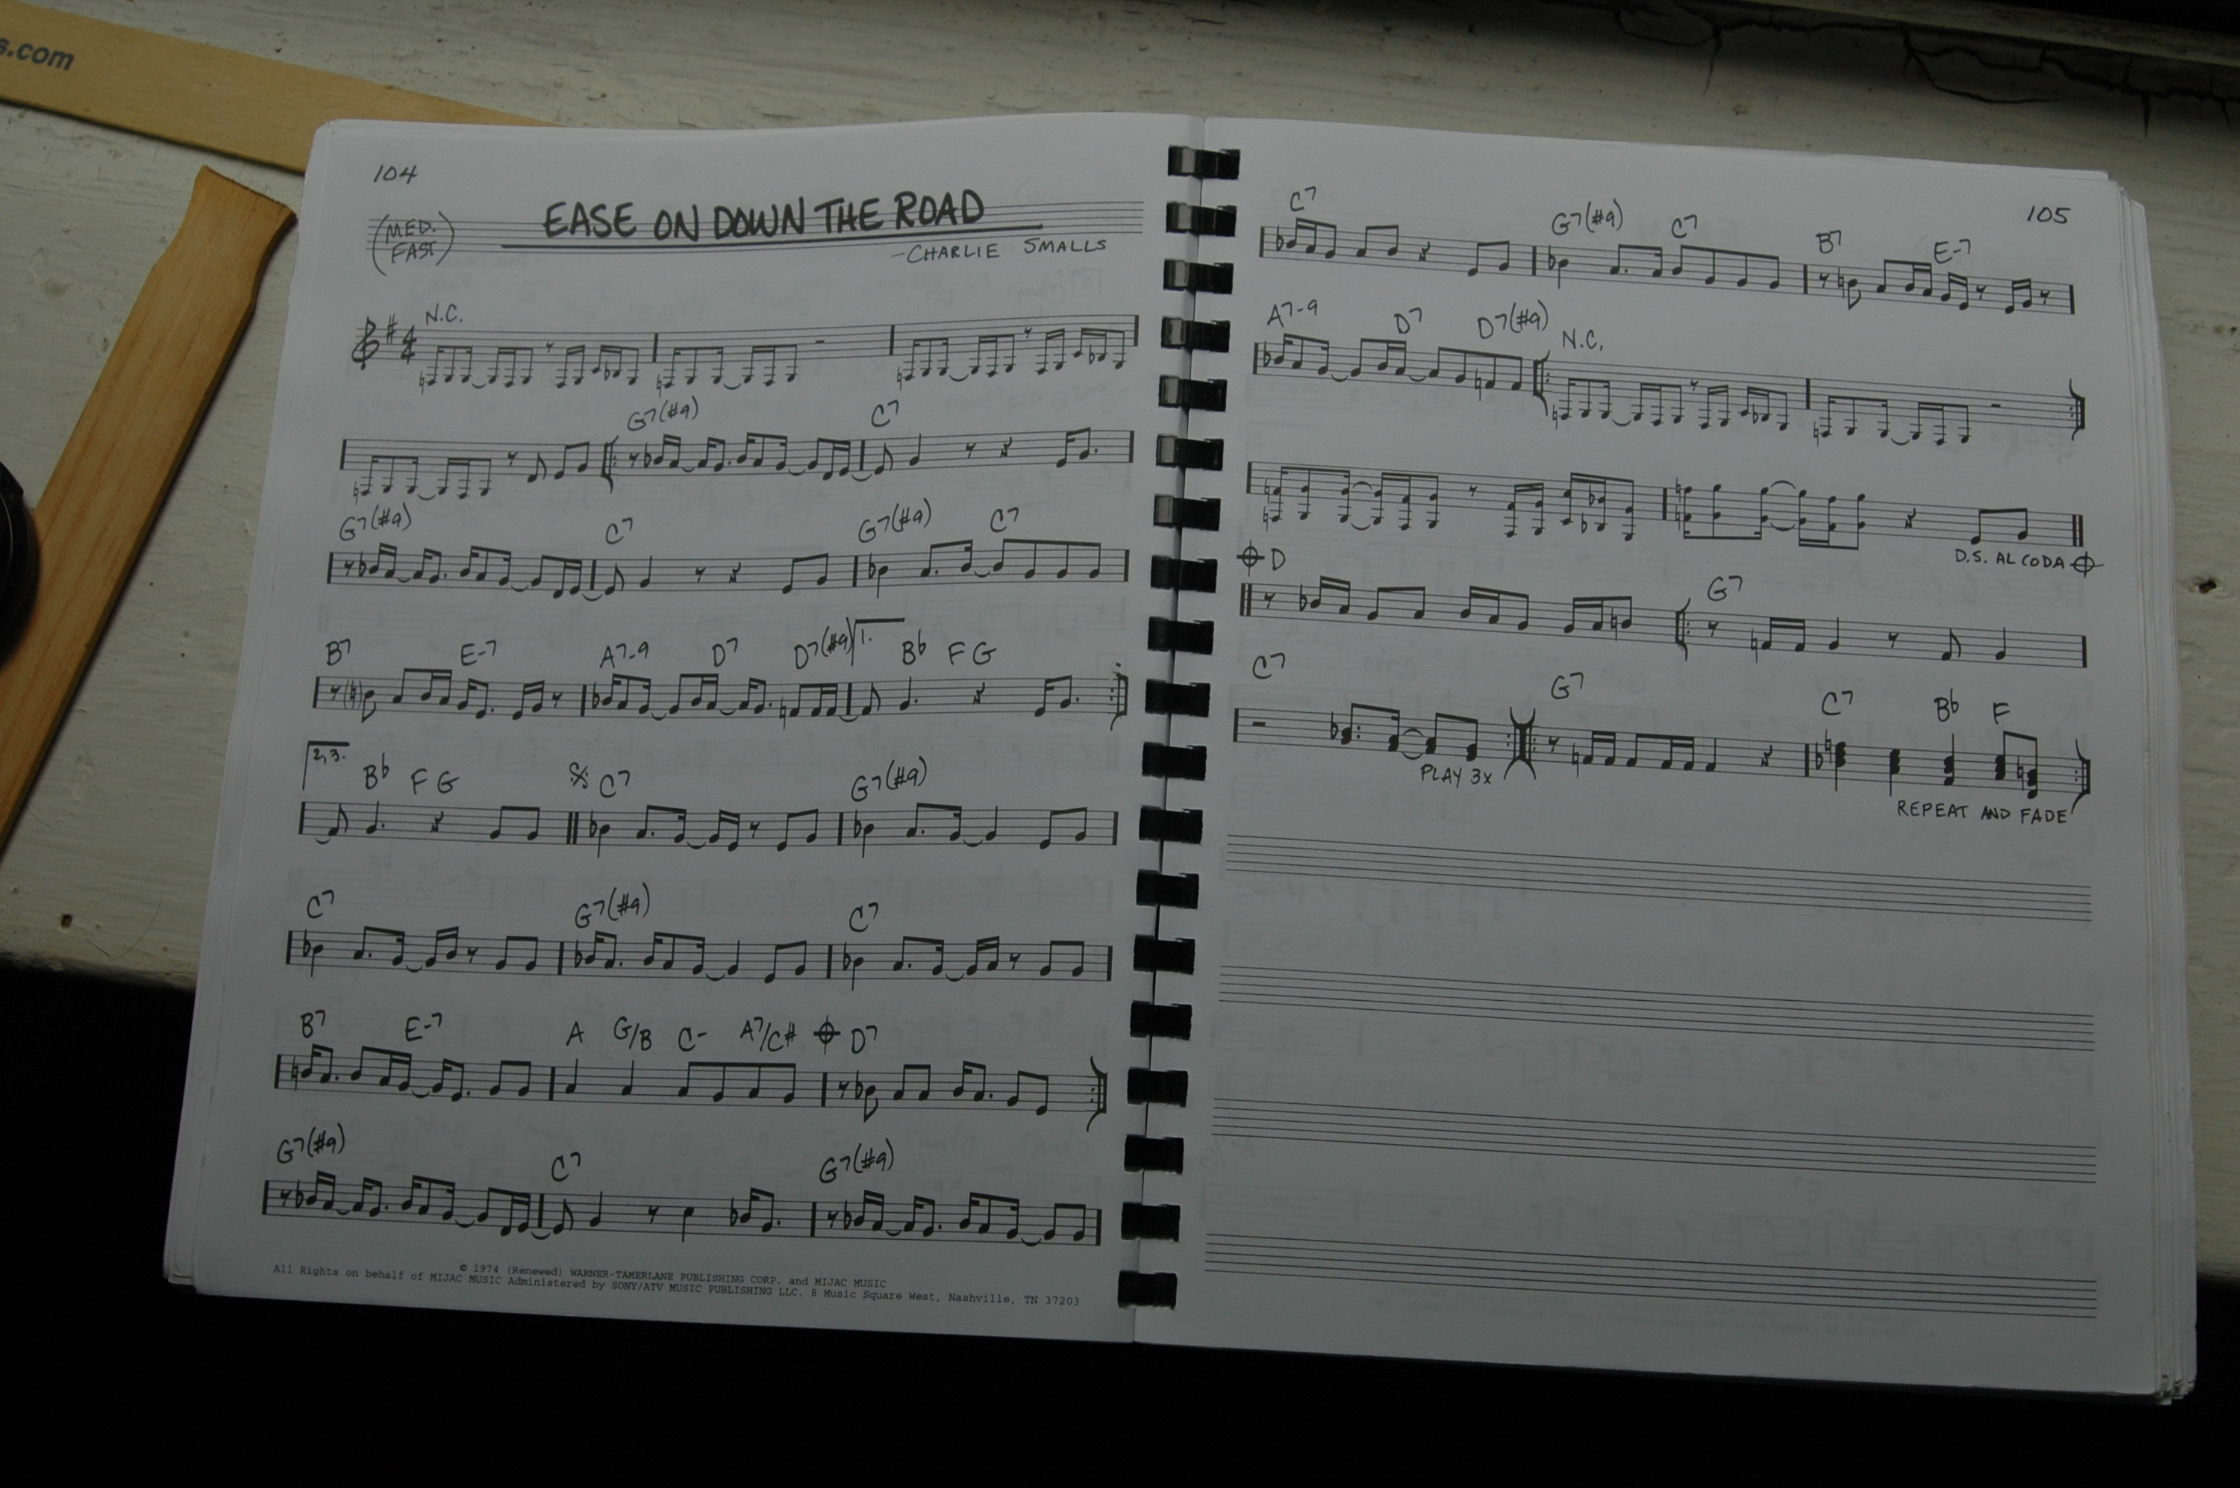 104
EASE ON DOWN THE ROAD
(MED. FAST)
-CHARLIE SMALLS
N.C.
G7(#9) C7
G7(#9) C7 G7(#9) C7
B7 E-7 A7-9 D7 D7(#9) 1. Bb F G
2,3. Bb F G C7 G7(#9)
C7 G7(#9) C7
B7 E-7 A G/B C- A7/C# D7
G7(#9) C7 G7(#9)
© 1974 (Renewed) WARNER-TAMERLANE PUBLISHING CORP. and MIJAC MUSIC
All Rights on behalf of MIJAC MUSIC Administered by SONY/ATV MUSIC PUBLISHING LLC, 8 Music Square West, Nashville, TN 37203
105
C7 G7(#9) C7 B7 E-7
A7-9 D7 D7(#9) N.C.
D.S. AL CODA
D G7
C7 G7 C7 Bb F
PLAY 3x
REPEAT AND FADE
s.com